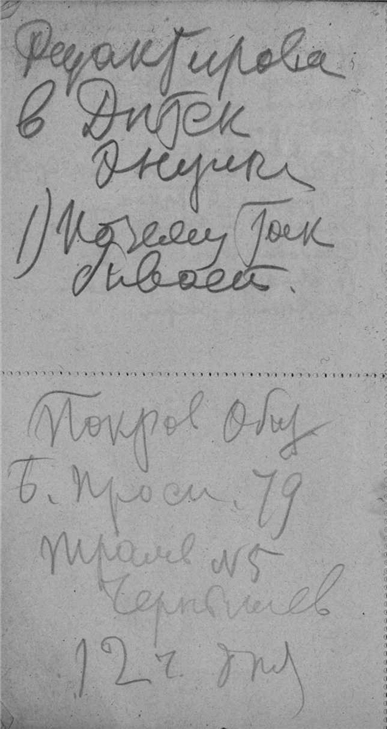 Редактирова
в Дитск
1) Почему так
бывает.
Покров
Б. Просп. 79
трамв №5
Чернышев
12 ч. дня